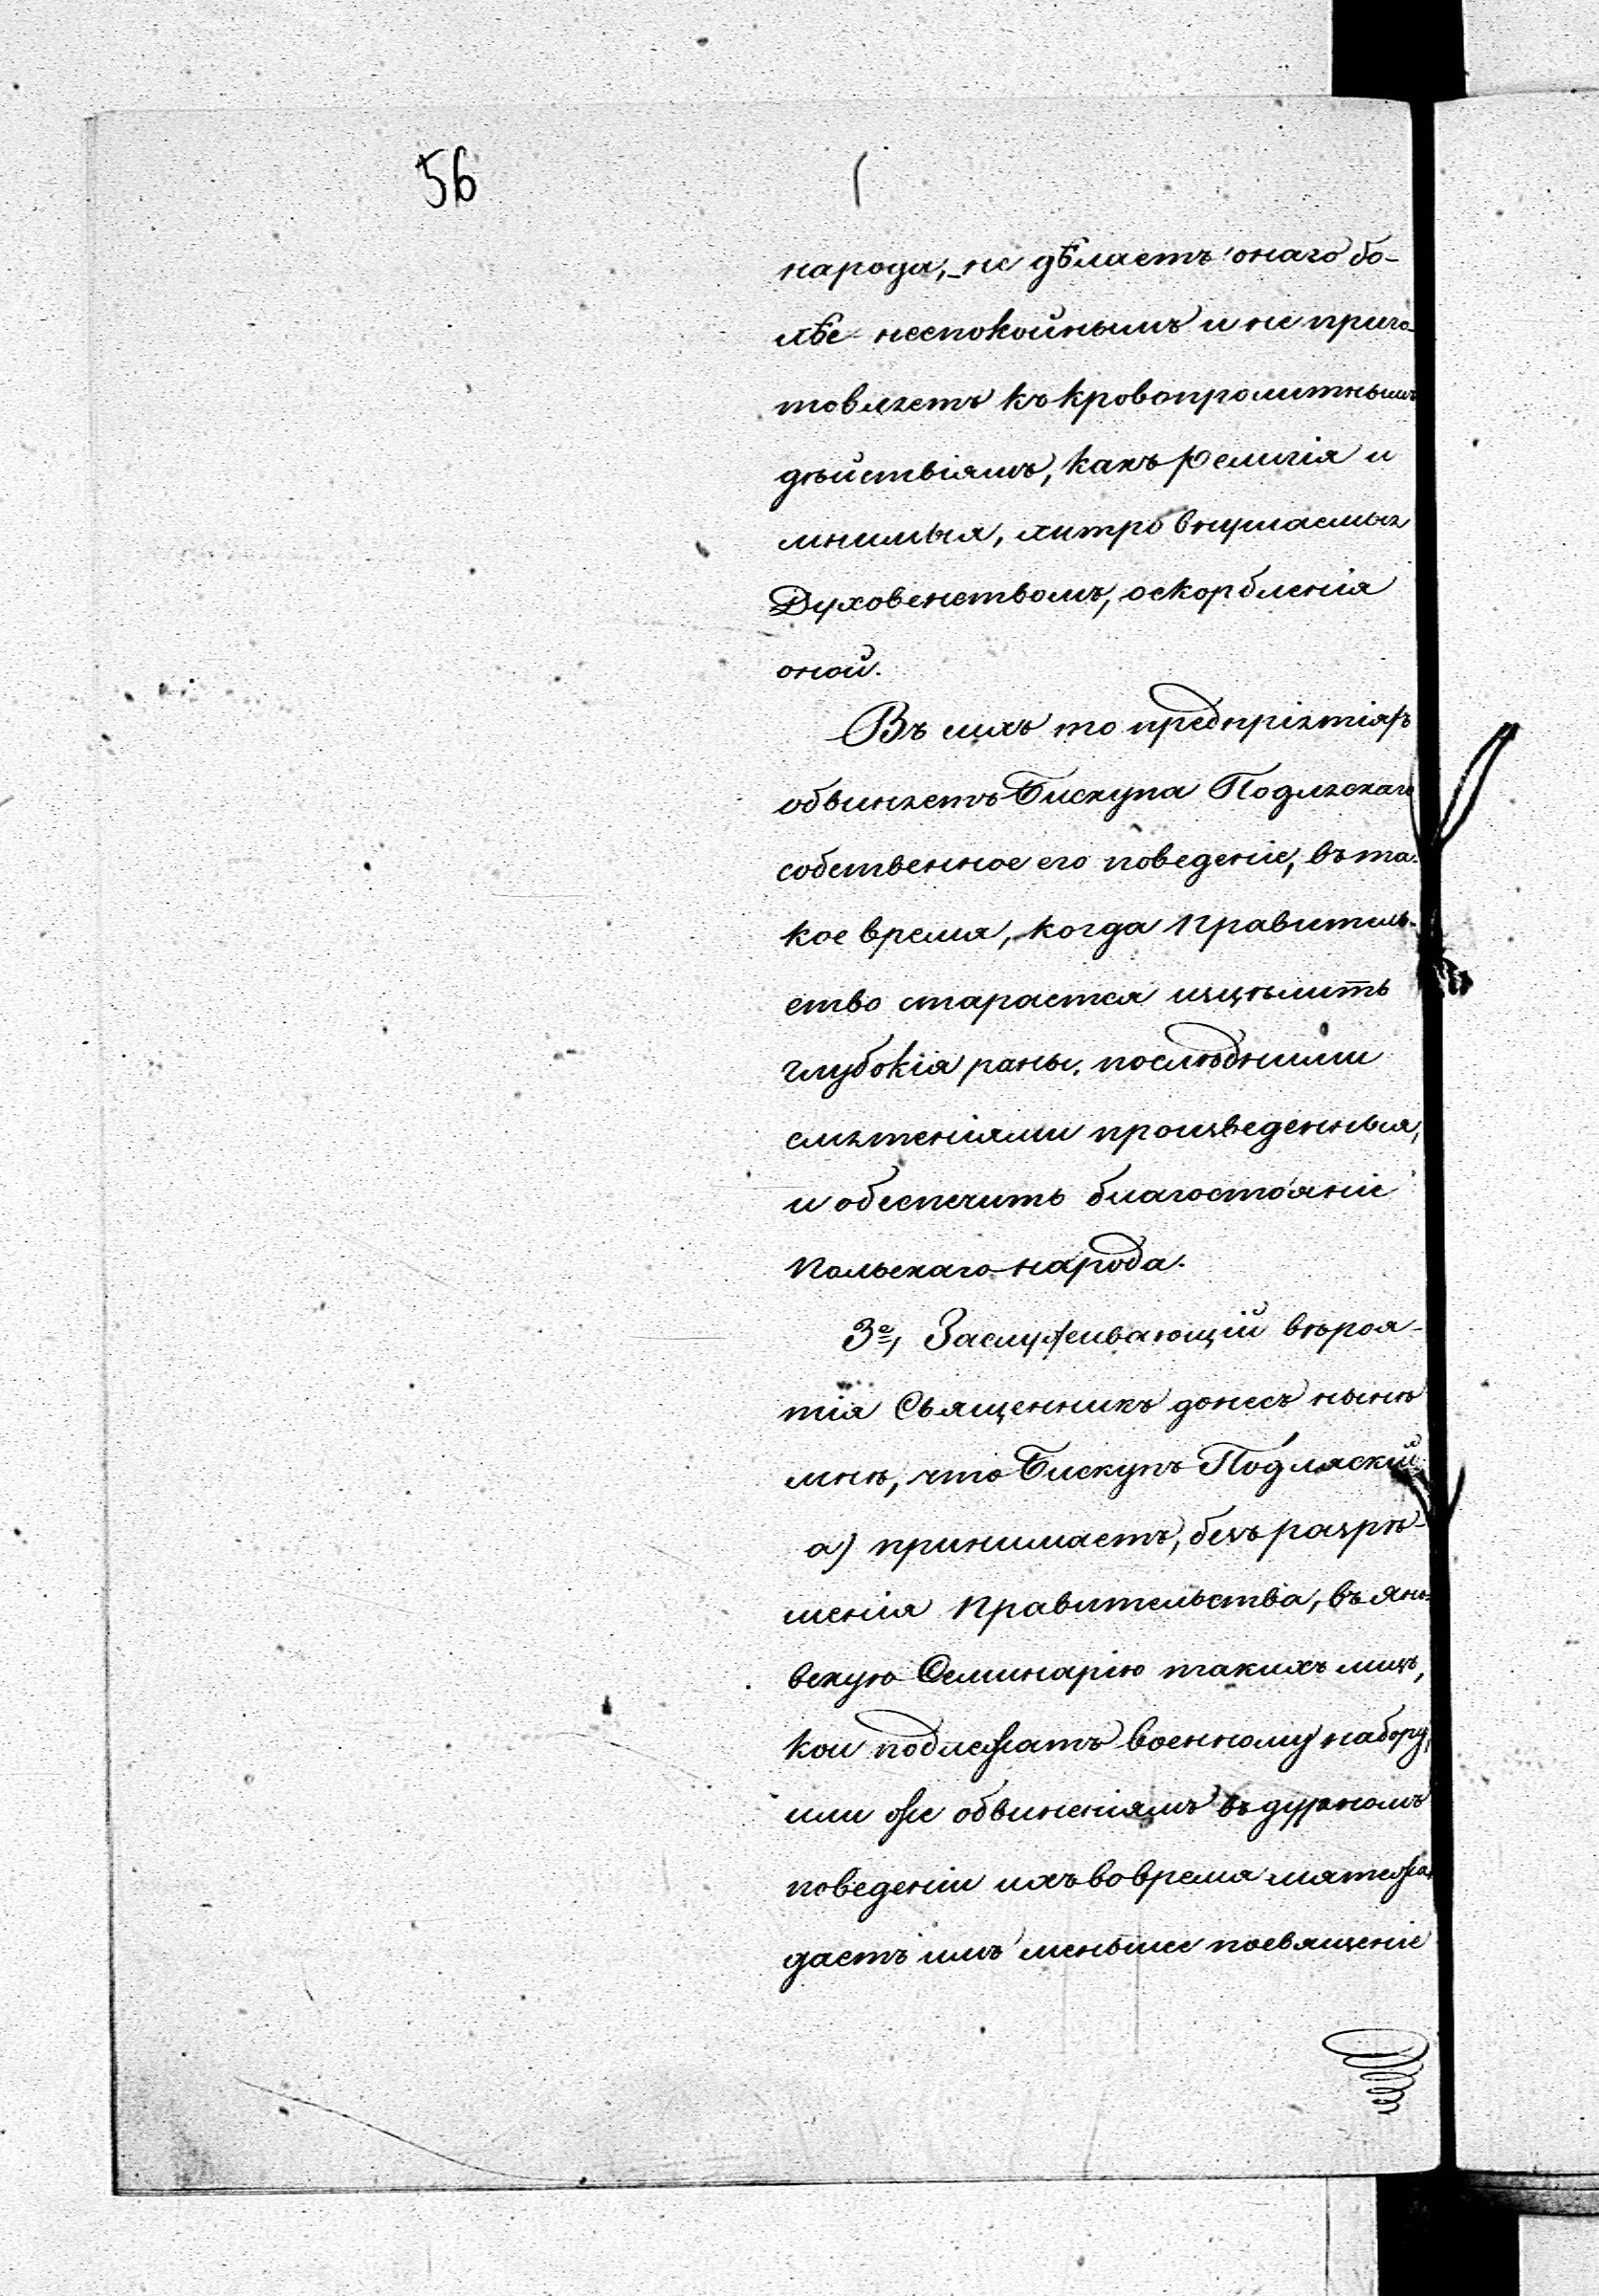 56
народа, не дѣлаетъ онаго бо-
лѣе неспокойнымъ и не приго-
товляетъ къ кровопролитнымъ
дѣйствіямъ, какъ Религія и
мнимыя, хитро внушаемыя
Духовенствомъ, оскорбленія
оной.
Въ сихъ то предпріятіяхъ
обвиняетъ Бискупа Подляскаго
собственное его поведеніе, въ та-
кое время, когда Правитель-
ство старается изцѣлить
глубокія раны, послѣдними
смятеніями произведенныя,
и обеспечить благостояніе
Польскаго народа.
3е, Заслуживающій вѣроя-
тія Священникъ донесъ нынѣ
мнѣ, что Бискупъ Подляскій
а) принимаетъ, безъ разрѣ-
шенія Правительства, въ Яно-
вскую Семинарію такихъ лицъ,
кои подлежатъ военному набору,
или же обвиненіямъ въ дурномъ
поведеніи ихъ во время мятежа,
даетъ имъ меньшее посвященіе